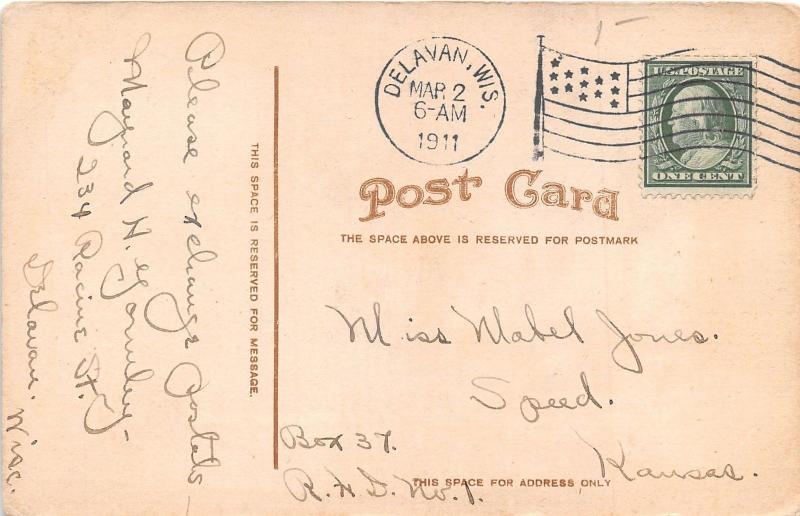 Please exchange postals—
Maynard H.
234 Racine St.
Delavan. Wisc.
THIS SPACE IS RESERVED FOR MESSAGE.
DELAVAN, WIS.
MAR 2
6-AM
1911
U.S. POSTAGE
ONE CENT
Post Card
THE SPACE ABOVE IS RESERVED FOR POSTMARK
Miss Mabel Jones.
Speed.
Kansas.
Box 37.
R.F.D. No. 1.
THIS SPACE FOR ADDRESS ONLY